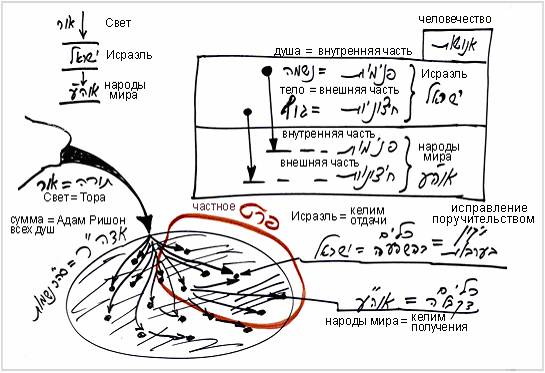 אור Свет
ישראל Исраэль
אוה"ע народы
мира
человечество
אנושות
душа = внутренняя часть
נשמה = פנימיות
тело = внешняя часть
גוף = חיצוניות
Исраэль
ישראל
внутренняя часть
פנימיות
внешняя часть
חיצוניות
народы
мира
אוה"ע
תורה = אור
Свет=Тора
сумма = Адам Ришон
всех душ
אדה"ר = סה"כ נשמות
частное פרט
Исраэль = келим
отдачи
исправление
поручительством
תיקון
בערבות = כלים דהשפעה = ישראל
כלים דקבלה = אוה"ע
народы мира = келим
получения